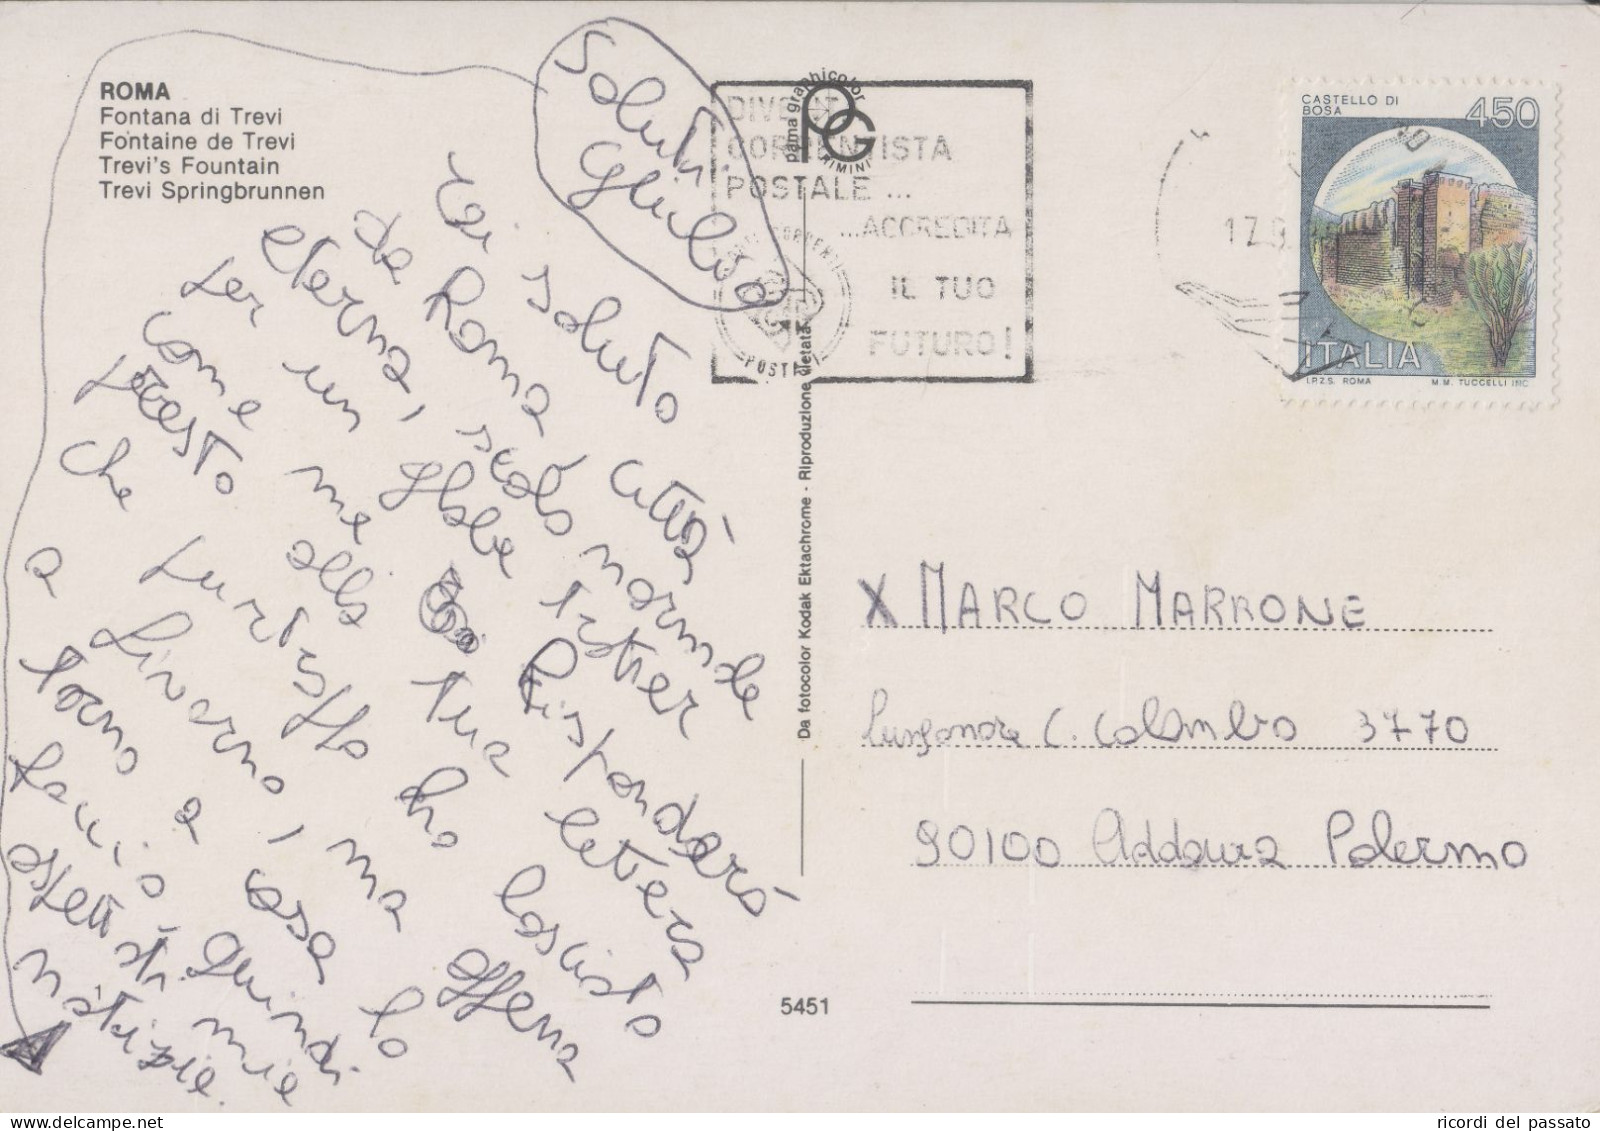 ROMA
Fontana di Trevi
Fontaine de Trevi
Trevi's Fountain
Trevi Springbrunnen
Saluti
Ti saluto
da Roma città
eterna, scalo normale
per un
come me alla Risponderò
presto tua lettera
che purtroppo ho lasciato
a Livorno, ma appena
torno a casa lo
faccio, Quindi
aspetta mie
notizie.
parma graphicolor
PG
RIMINI
DIVENTA
CORRENTISTA
POSTALE ...
...ACCREDITA
IL TUO
FUTURO!
CORRENTI
POSTALI
17.
CASTELLO DI
BOSA
450
ITALIA
I.P.Z.S. ROMA
M.M. TUCCELLI INC.
Da fotocolor Kodak Ektachrome - Riproduzione vietata
X MARCO MARRONE
C. Colombo 3770
90100 Addaura Palermo
5451
ricordi del passato